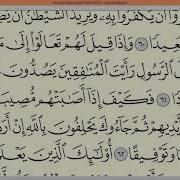 أَن يَكْفُرُوا۟ بِهِۦ وَيُرِيدُ ٱلشَّيْطَٰنُ أَن
عِيدًا ٦٠ وَإِذَا قِيلَ لَهُمْ تَعَالَوْا۟ إِلَىٰ
ٱلرَّسُولِ رَأَيْتَ ٱلْمُنَٰفِقِينَ يَصُدُّونَ
٦١ فَكَيْفَ إِذَآ أَصَٰبَتْهُم مُّصِيبَ
يدِيهِمْ ثُمَّ جَآءُوكَ يَحْلِفُونَ بِٱللَّهِ إِنْ أَرَ
وَتَوْفِيقًا ٦٢ أُو۟لَٰٓئِكَ ٱلَّذِينَ يَعْلَ